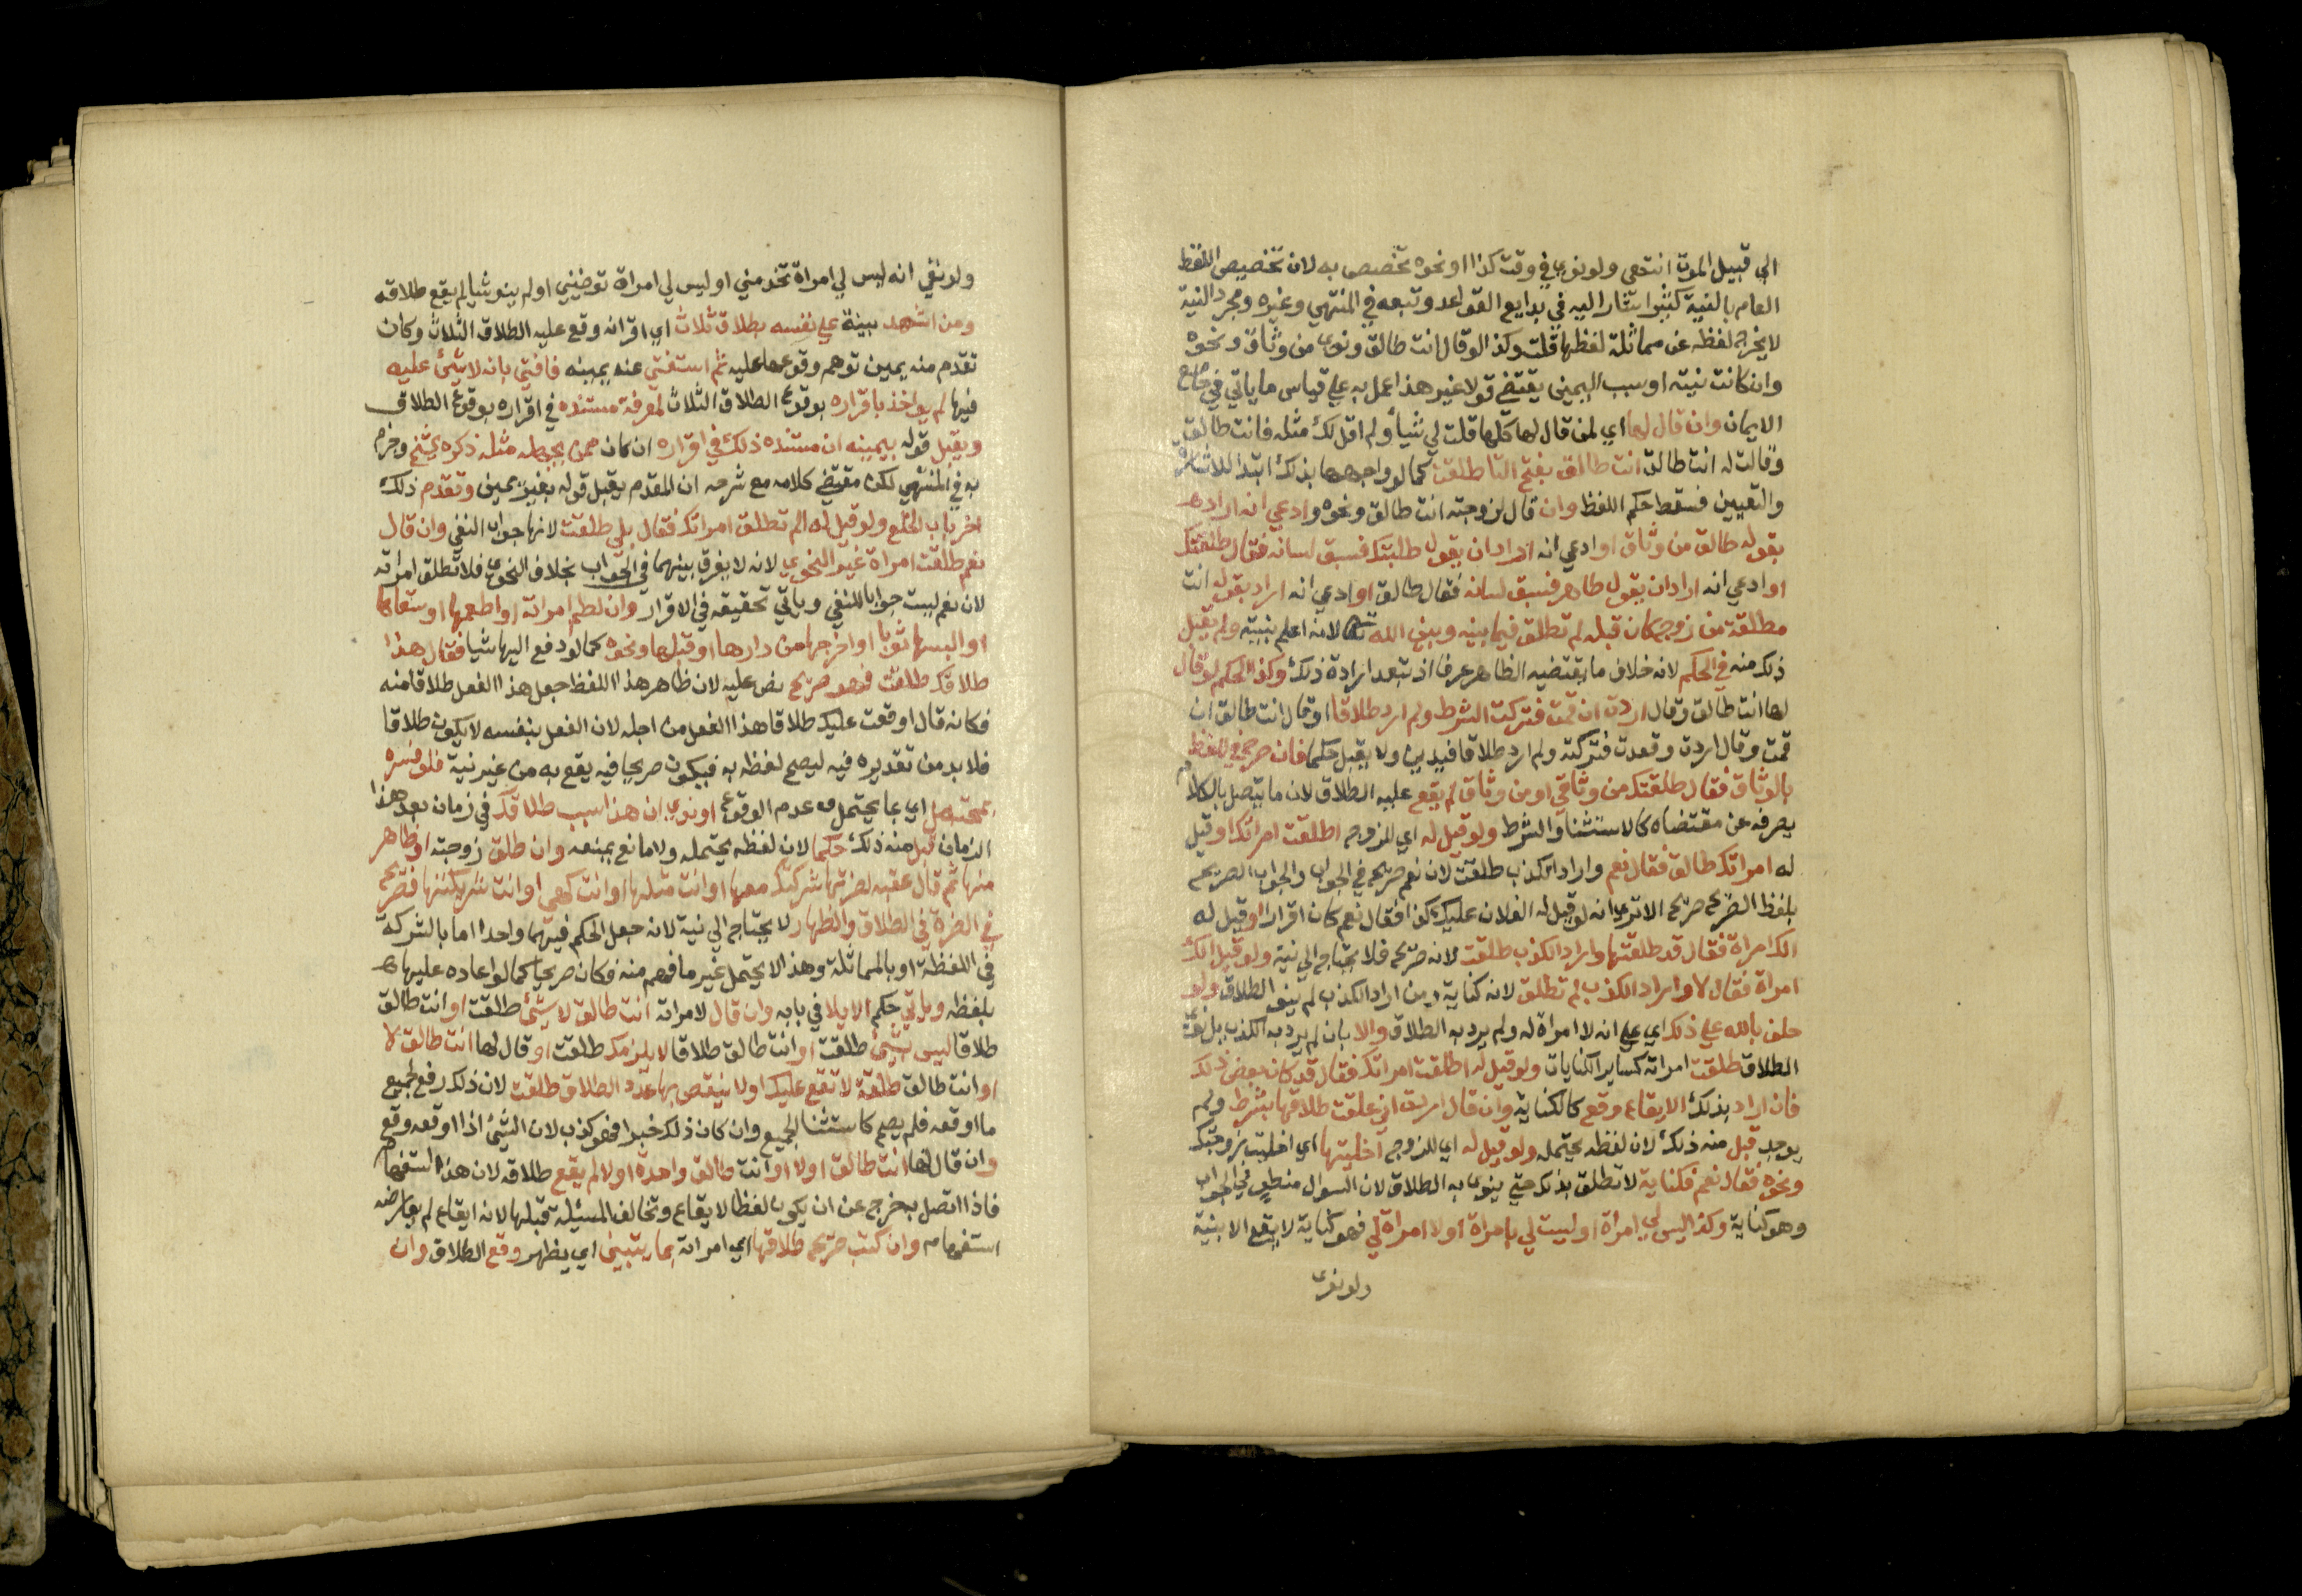 الي قبيل الموت انتهى ولو نوى في وقت كذا او نحوه تخصص به لان تخصيص اللفظ
العام بالنية كثير اشار اليه في بدايع الفوايد وتبعه في المنتهي وغيره ومجرد النية
لا يخرج لفظه عن مماثلة لفظها قلت وكذا لو قال انت طالق ونوى من وثاق ونحوه
وان كانت نيته او سبب اليمين يقتضي قولا غير هذا عمل به على قياس ما ياتي في جامع
الايمان وان قال لها اي لمن قال لها كلما قلت لي شيأ ولم اقل لك مثله فانت طالق
وقالت له انت طالق انت طالق بفتح التا طلقت كما لو واجهها بذلك ابتدا للاشارة
والتعيين فسقط حكم اللفظ وان قال لزوجته انت طالق ونحوه وادعي انه اراد
بقوله طالق من وثاق او ادعي انه اراد ان يقول طلبتك فسبق لسانه فقال طلقتك
او ادعي انه اراد ان يقول طاهر فسبق لسانه فقال طالق او ادعي انه اراد بقوله انت
مطلقة من زوج كان قبله لم تطلق فيما بينه وبين الله تعالى لانه اعلم بنيته ولم يقبل
ذلك منه في الحكم لانه خلاف ما يقتضيه الظاهر عرفا اذ تبعد ارادة ذلك وكذا الحكم لو قال
لها انت طالق وقال اردت ان قمت فتركت الشرط ولم ارد طلاقا او قال انت طالق ان
قمت وقال اردت وقعدت فتركته ولم ارد طلاقا فيدين ولا يقبل حكما فان صرح في اللفظ
بالوثاق فقال طلقتك من وثاقي او من وثاق لم يقع عليه الطلاق لان ما يتصل بالكلام
يصرفه عن مقتضاه كالاستثنا والشرط ولو قيل له اي للزوج اطلقت امراتك او قيل
له امراتك طالق فقال نعم واراد الكذب طلقت لان نعم صريح في الجواب والجواب الصريح
بلفظ الصريح صريح الا ترى انه لو قيل له الفلان عليك كذا فقال نعم كان اقرارا او قيل له
الك امراة فقال قد طلقتها واراد الكذب طلقت لانه صريح فلا يحتاج الي نية ولو قيل الك
امراة فقال لا واراد الكذب لم تطلق لانه كناية ومن اراد الكذب لم ينو الطلاق ولو
حلف بالله علي ذلك اي علي انه لا امراة له ولم يرد به الطلاق والا بان لم يرد به الكذب بل نوى
الطلاق طلقت امراته كساير الكنايات ولو قيل له اطلقت امراتك فقال قد كان بعض ذلك
فان اراد بذلك الايقاع وقع كالكناية وان قال اردت اني علقت طلاقها بشرط ولم
يوجد قبل منه ذلك لان لفظه يحتمله ولو قيل له اي للزوج اخليتها اي اخليت زوجتك
ونحوه فقال نعم فكناية لا تطلق بذلك حتي ينوى به الطلاق لان السوال منطو في الجواب
وهو كناية وكذا ليس لي امراة او ليست لي بامراة او لا امراة لي فهو كناية لا يقع الا بنية
ولو نوى
ولو نوى انه ليس لي امراة تخدمني او ليس لي امراة ترضيني او لم ينو شيا لم يقع طلاقه
ومن اشهد بينة علي نفسه بطلاق ثلاث اي اقر انه وقع عليه الطلاق الثلاث وكان
تقدم منه يمين توهم وقوعها عليه ثم استفتي عنه يمينه فافتي بانه لا شئ عليه
فيها لم يواخذ باقراره بوقوع الطلاق الثلاث لمعرفة مستنده في اقراره بوقوع الطلاق
ويقبل قوله بيمينه ان مستنده ذلك في اقراره ان كان ممن يجهله مثله ذكره الشيخ وجزم
به في المنتهي لكن مقتضي كلامه مع شرحه ان المقدم يقبل قوله بغير يمين وتقدم ذلك
اخر باب الخلع ولو قيل له الم تطلق امراتك فقال بلي طلقت لانها جواب النفي وان قال
نعم طلقت امراة غير النحوي لانه لا يفرق بينهما في الجواب بخلاف النحوى فلا تطلق امراته
لان نعم ليست جوابا للنفي وياتي تحقيقه في الاقرار وان لطم امراته او اطعمها او سقاها
او البسها ثوبا او اخرجها من دارها او قبلها ونحوه كما لو دفع اليها شيا فقال هذا
طلاقك طلقت فهو صريح نص عليه لان ظاهر هذا اللفظ جعل هذا الفعل طلاقا منه
فكانه قال اوقعت عليك طلاقا هذا الفعل من اجله لان الفعل بنفسه لا يكون طلاقا
فلا بد من تقديره فيه ليصح لفظه به فيكون صريحا فيه يقع به من غير نية فلو فسره
بمحتمل اي بما يحتمله عدم الوقوع او نوى ان هذا سبب طلاقك في زمان بعد هذا
الزمان قبل منه ذلك حكما لان لفظه يحتمله ولا مانع يمنعه وان طلق زوجته او ظاهر
منها ثم قال عقبه لضرتها شركتك معها او انت مثلها او انت كهي او انت شريكتها فصريح
في الضرة في الطلاق والظهار لا يحتاج الي نية لانه جعل الحكم فيهما واحدا اما بالشركة
في اللفظة او بالمماثلة وهذا لا يحتمل غير ما فهم منه فكان صريحا كما لو اعاده عليها
بلفظه وياتي حكم الايلا في بابه وان قال لامراته انت طالق لا شئ طلقت او انت طالق
طلاقا ليس بشئ طلقت او انت طالق طلاقا لا يلزمك طلقت او قال لها انت طالق لا
او انت طالق طلقة لا تقع عليك او لا ينقص بها عدد الطلاق طلقت لان ذلك رفع لجميع
ما اوقعه فلم يصح كاستثنا الجميع وان كان ذلك خبرا فهو كذب لان الشئ اذا اوقعه وقع
وان قال لها انت طالق اولا او انت طالق واحدة اولا لم يقع طلاقه لان هذا استفهام
فاذا اتصل به خرج عن ان يكون لفظا لايقاع وتخالف المسئلة قبلها لانه ايقاع لم يعارضه
استفهام وان كتب صريح طلاقها اي امراته بما يتبين اي يظهر وقع الطلاق وان